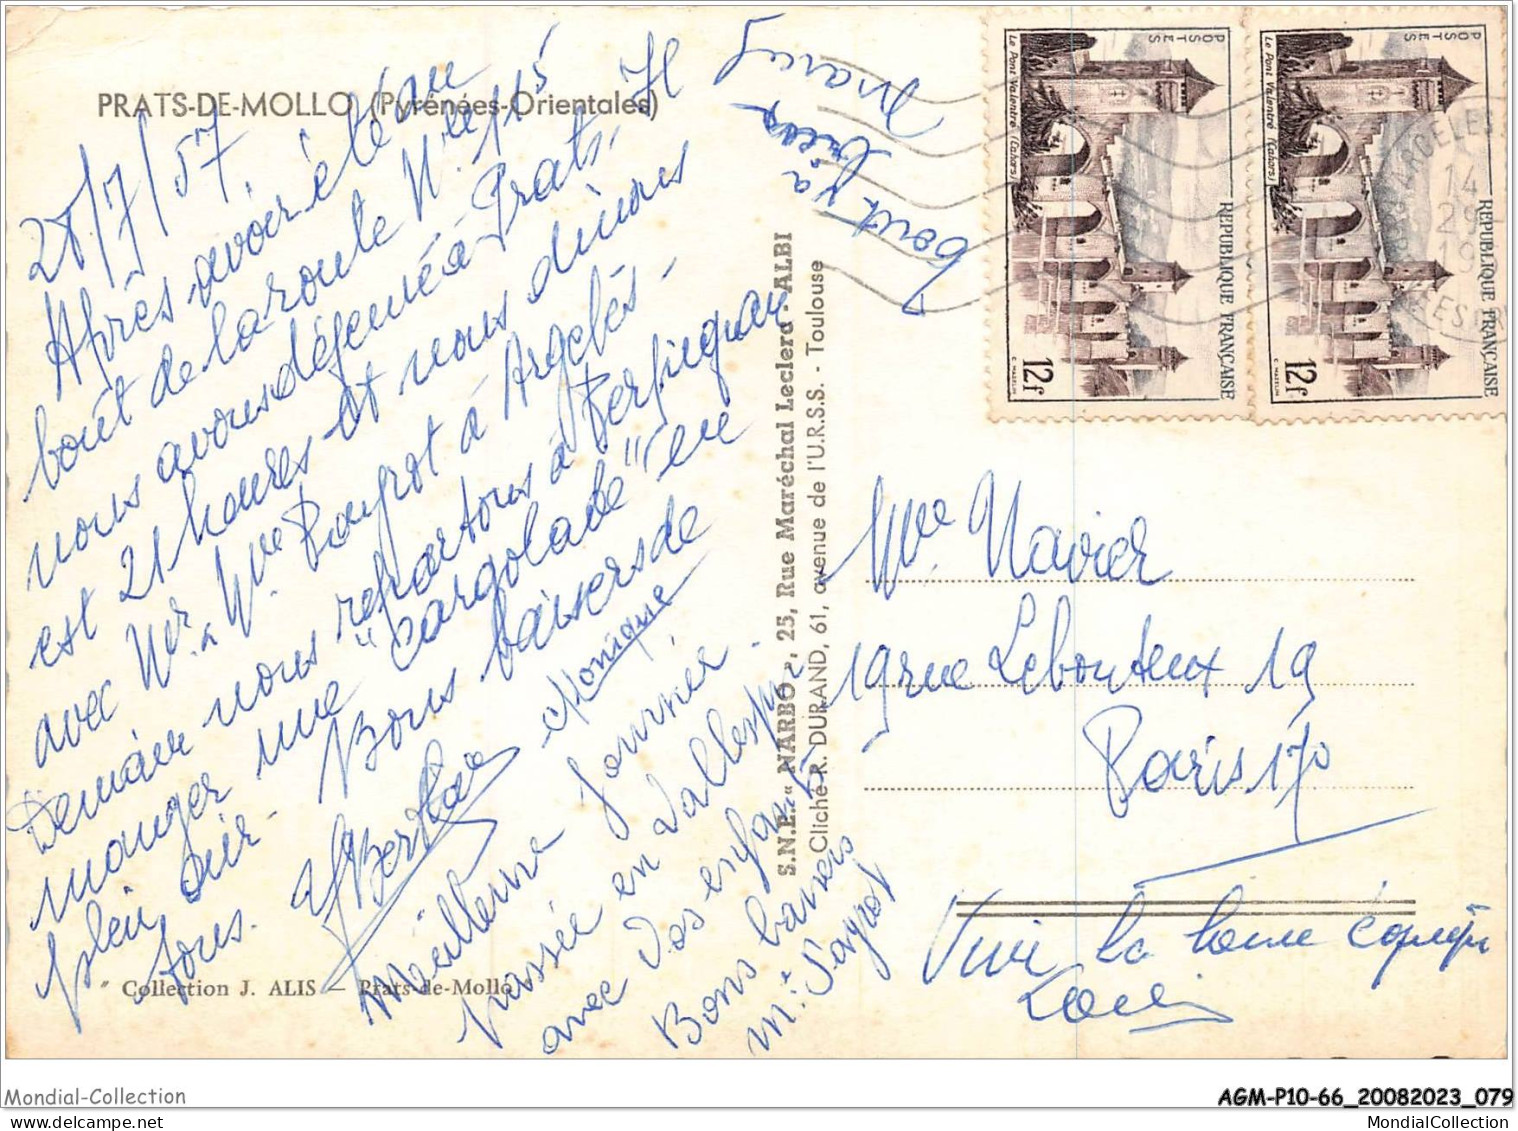 PRATS-DE-MOLLO (Pyrénées-Orientales)
28/7/57
Après avoir été au
bout de la route Nle 115
nous avons déjeuné à Prats. Il
est 21 heures et nous dinons
avec Mr & Mme Pougrot à Argelès -
Demain nous repartons à Perpignan
manger une "cargolade" en
plein air - Bons baisers de
tous.
Monique
Meilleure journée
passée en Vallespir
avec vos enfants
Bons baisers
Tout va
bien
Marcy
S.N.E. « NARBO », 25, Rue Maréchal Leclerc - ALBI
Cliché R. DURAND, 61, avenue de l'U.R.S.S. - Toulouse
POSTES
Le Pont Valentré (Cahors)
REPUBLIQUE FRANÇAISE
12f
C. MAZELIN
POSTES
Le Pont Valentré (Cahors)
REPUBLIQUE FRANÇAISE
12f
C. MAZELIN
ARGELES
14
29-
19
Mme Navier
19 rue Lebouteux 19
Paris 17e
Vive la bonne
" Collection J. ALIS - Prats-de-Mollo
Mondial-Collection
AGM-P10-66_20082023_079
MondialCollection.com